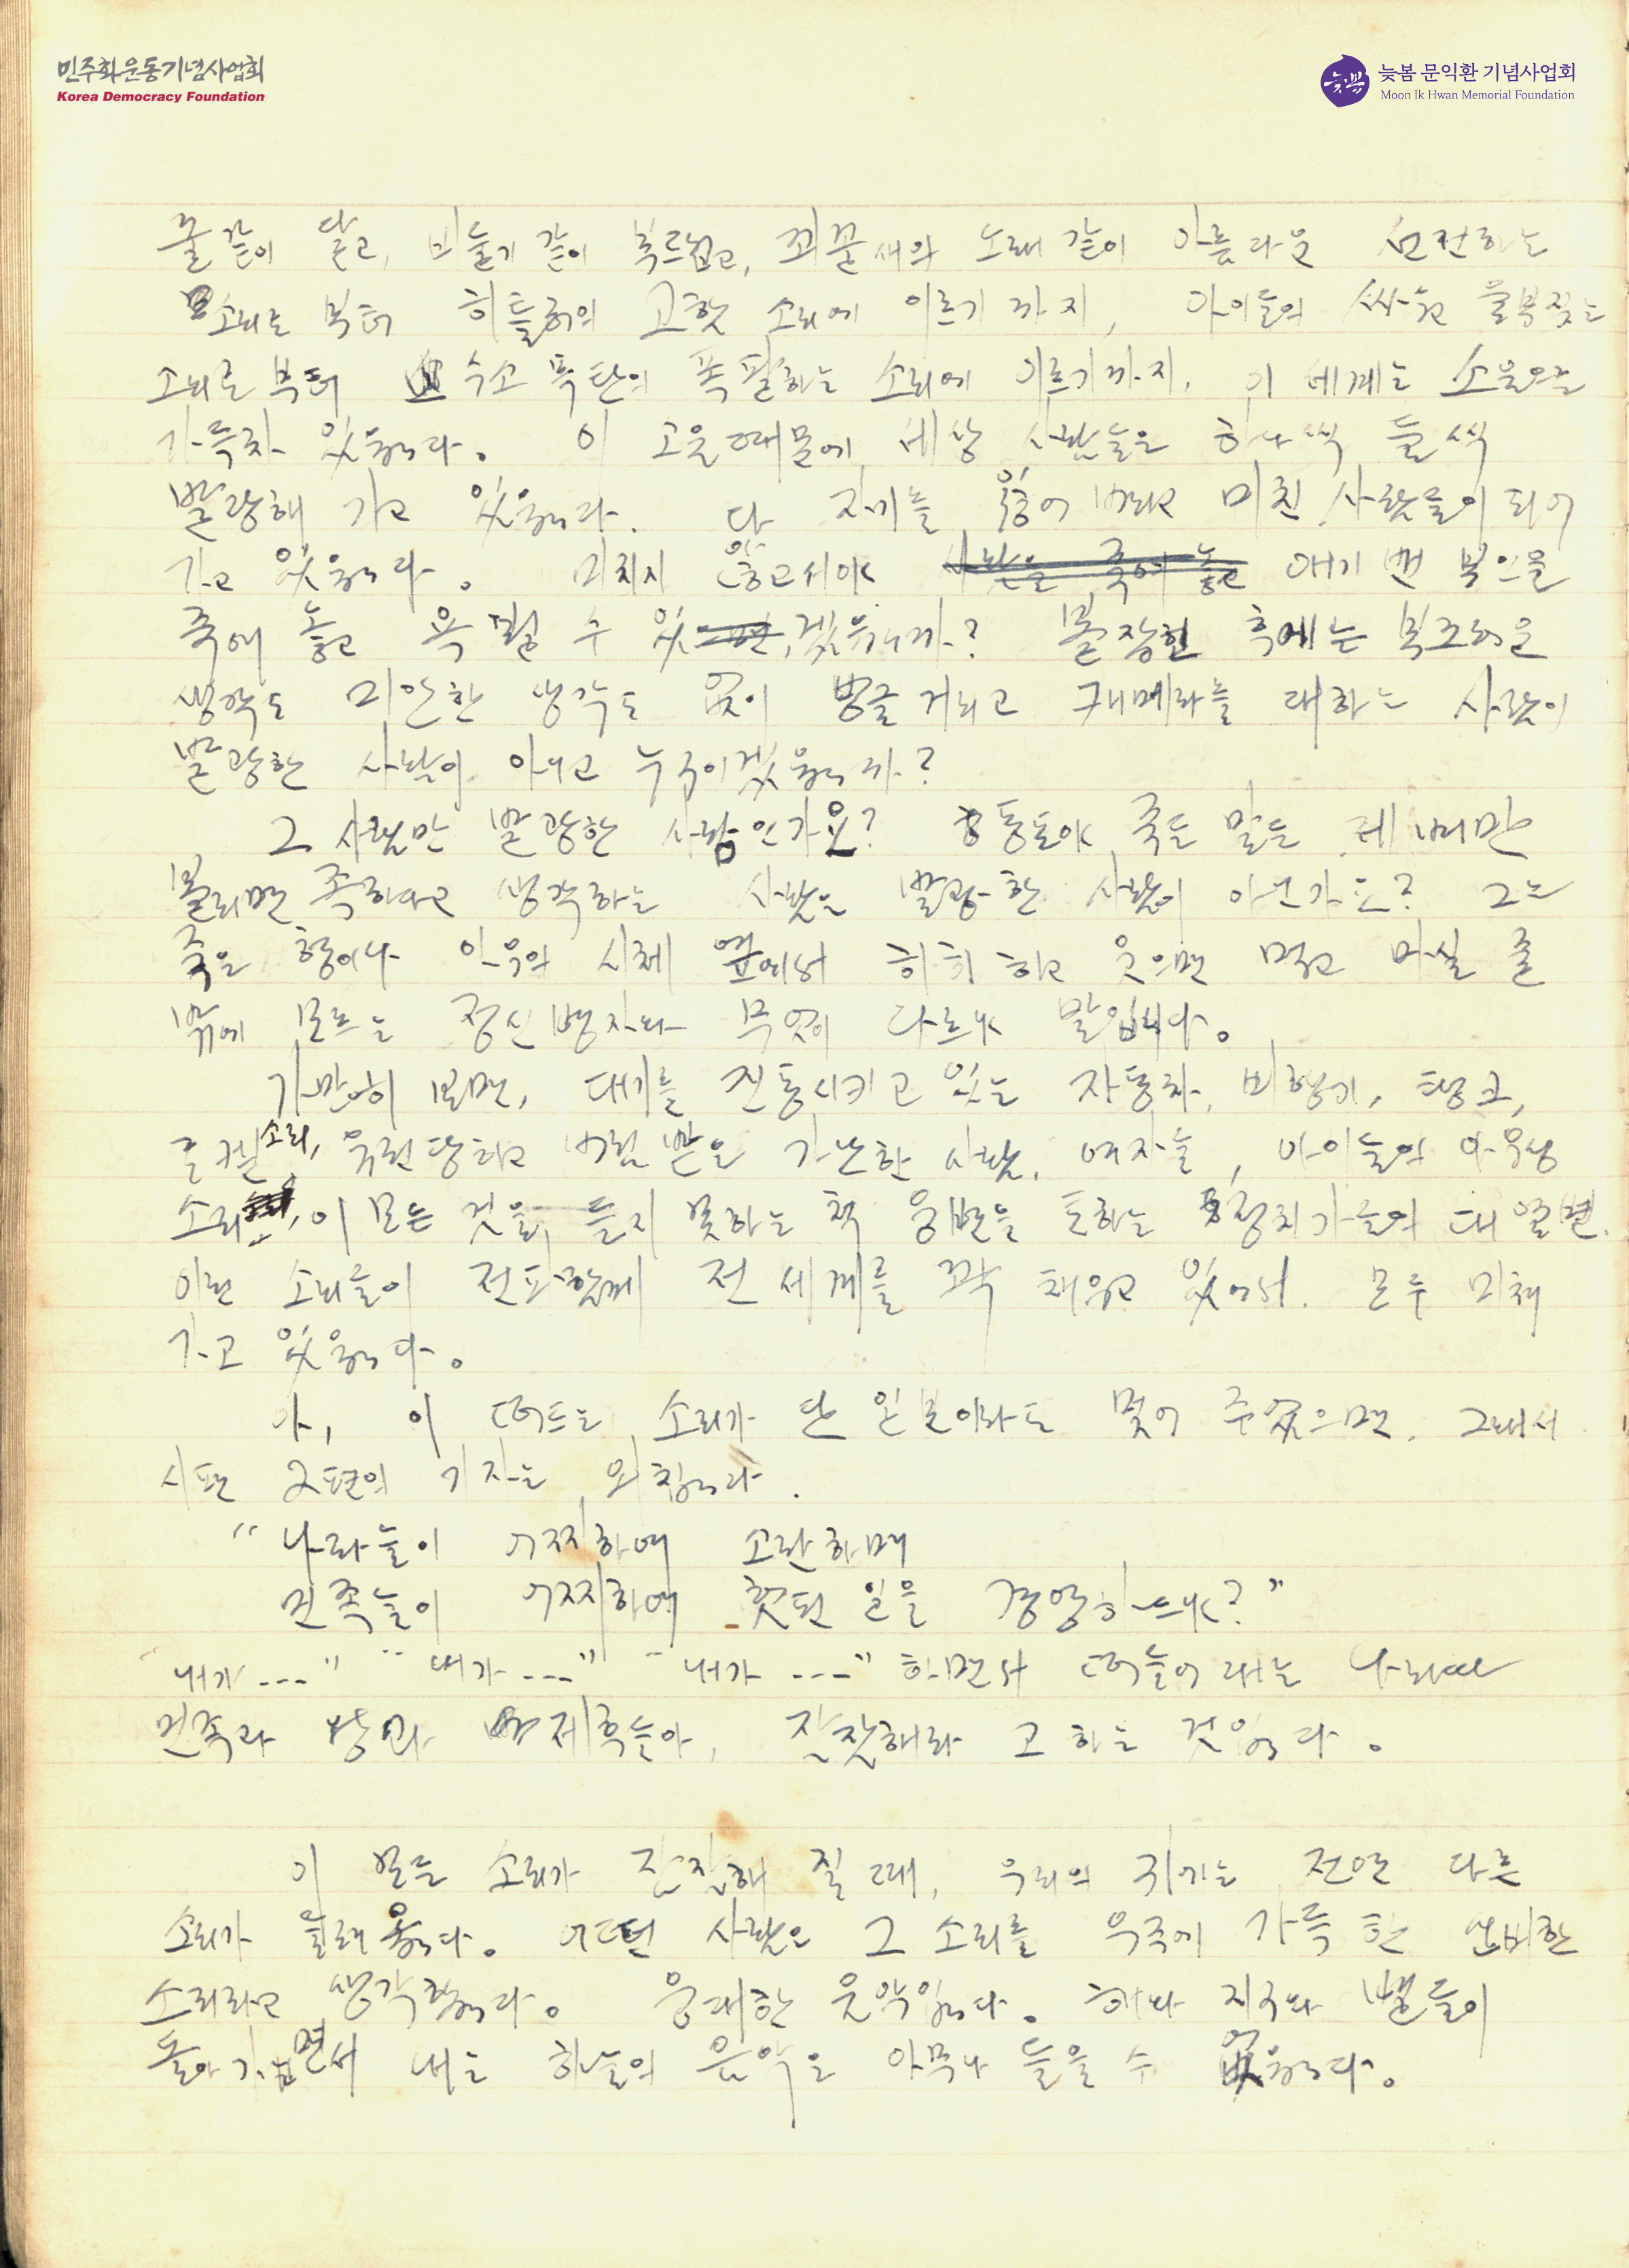 민주화운동기념사업회
Korea Democracy Foundation
늦봄 문익환 기념사업회
Moon Ik Hwan Memorial Foundation
꿀 같이 달고, 비둘기 같이 부드럽고, 꾀꼴새의 노래 같이 아름다운 선전하는
소리로 부터 히틀러의 고함 소리에 이르기 까지, 아이들의 싸우고 울부짖는
소리로 부터 수소 폭탄의 폭발하는 소리에 이르기까지, 이 세계는 소음으로
가득차 있읍니다. 이 소음 때문에 세상 사람들은 하나씩 둘씩
발광해 가고 있읍니다. 다 자기를 잃어 버리고 미친 사람들이 되어
가고 있읍니다. 미치지 않고서야 애기 밴 부인을
죽여 놓고 욕 뵐 수 있겠읍니까? 붙잡힌 후에는 부끄러운
생각도 미안한 생각도 없이 벙글 거리고 캐메라를 대하는 사람이
발광한 사람이 아니고 누구이겠읍니까?
그 사람만 발광한 사람인가요? 동톨아 죽든 말든 제 배만
불리면 족하다고 생각하는 사람은 발광한 사람이 아닌가요? 그는
죽은 형이나 아우의 시체 옆에서 히히 하고 웃으면 먹고 마실 줄
밖에 모르는 정신병자와 무엇이 다르냐 말입니다.
가만히 보면, 대기를 진동시키고 있는 자동차, 비행기, 탱크,
로켙 소리, 유린당하고 버림 받은 가난한 사람, 여자들, 아이들의 아우성
소리, 이 모든 것을 듣지 못하는 척 웅변을 토하는 정치가들의 대열변.
이런 소리들이 전파함께 전 세계를 꽉 채우고 있어서, 모두 미쳐
가고 있읍니다.
아, 이 떠드는 소리가 단 일분이라도 멎어 주었으면. 그래서
시편 2편의 기자는 외칩니다.
"나라들이 어찌하여 소란하며
민족들이 어찌하여 헛된 일을 경영하느냐?"
"내가 ---" "내가 ---" "내가 ---" 하면서 떠들어 대는 나라와
민족과 방과 제혹들아, 잔잔해라 고 하는 것입니다.
이 모든 소리가 잔잔해 질 때, 우리의 귀에는 전연 다른
소리가 들려 옵니다. 어떤 사람은 그 소리를 우주에 가득 한 신비한
소리라고 생각합니다. 웅대한 음악입니다. 해와 지구와 별들이
돌아 가면서 내는 하늘의 음악은 아무나 들을 수 없읍니다.